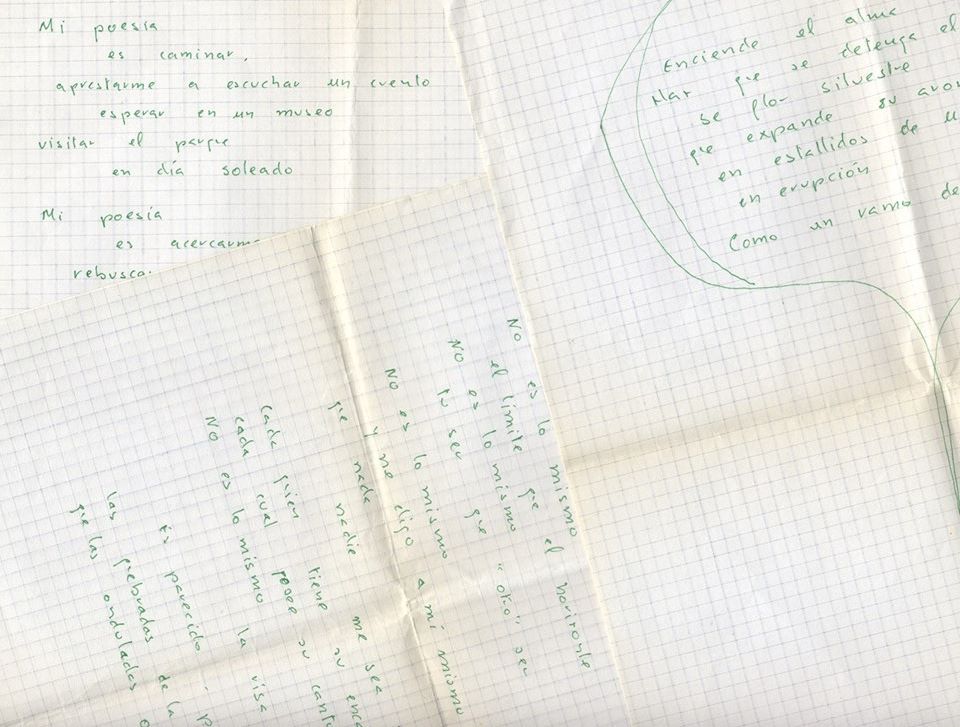 Mi poesía
es caminar,
aprestarme a escuchar un cuento
esperar en un museo
visitar el parque
en día soleado
Mi poesía
es
Enciende el alma
que se detenga el
se silvestre
que expande su
en estallidos de
en erupción
Como un ramo de
No es lo mismo
el límite que el horizonte
No es lo mismo "otro" ser
tu ser que
No es lo mismo
y me digo a mí mismo
que nada nadie me sea
cada quien tiene su
cada cual posee su
No es lo mismo la
Es parecido
las quebradas de la
que las onduladas